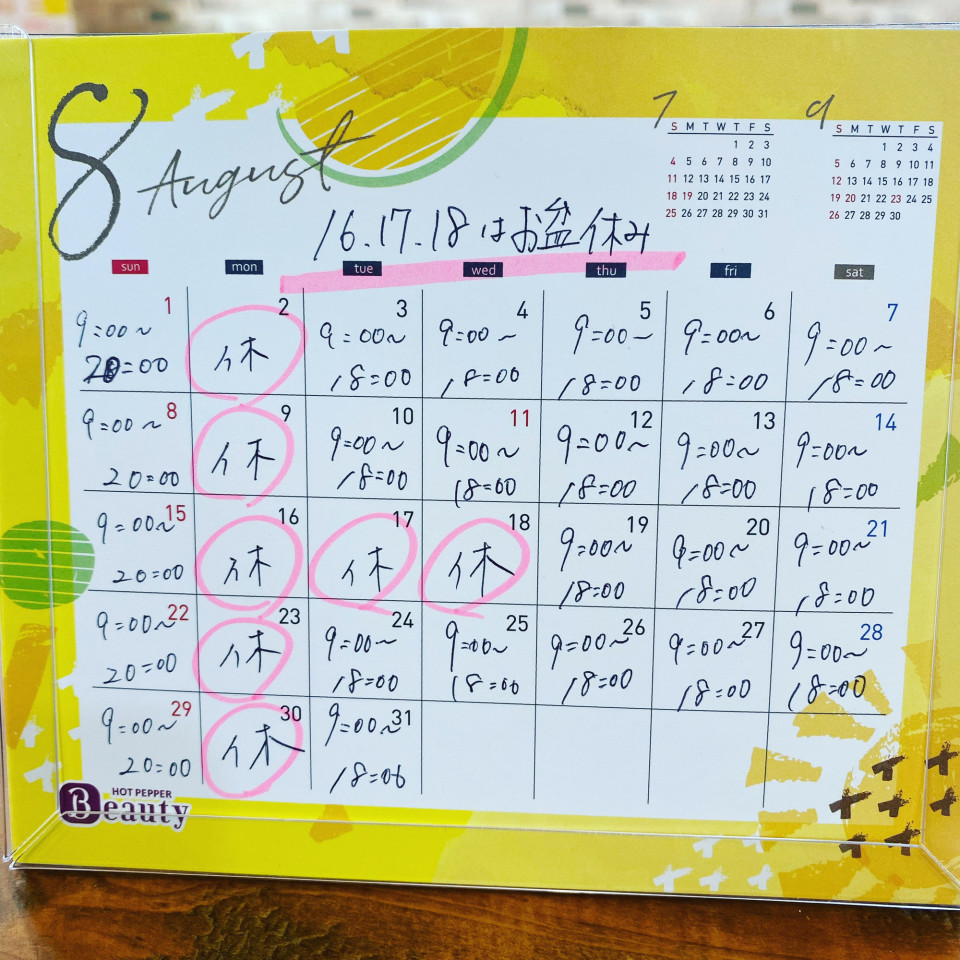 8 August
7
S M T W T F S
1 2 3
4 5 6 7 8 9 10
11 12 13 14 15 16 17
18 19 20 21 22 23 24
25 26 27 28 29 30 31
9
S M T W T F S
1 2 3 4
5 6 7 8 9 10 11
12 13 14 15 16 17 18
19 20 21 22 23 24 25
26 27 28 29 30
16.17.18はお盆休み
sun mon tue wed thu fri sat
1 2 3 4 5 6 7
9=00~ 休 9=00~ 9=00~ 9=00~ 9=00~ 9=00~
20=00 18=00 18=00 18=00 18=00 18=00
8 9 10 11 12 13 14
9=00~ 休 9=00~ 9=00~ 9=00~ 9=00~ 9=00~
20=00 18=00 18=00 18=00 18=00 18=00
15 16 17 18 19 20 21
9=00~ 休 休 休 9=00~ 9=00~ 9=00~
20=00 18=00 18=00 18=00
22 23 24 25 26 27 28
9=00~ 休 9=00~ 9=00~ 9=00~ 9=00~ 9=00~
20=00 18=00 18=00 18=00 18=00 18=00
29 30 31
9=00~ 休 9=00~
20=00 18=00
HOT PEPPER
Beauty